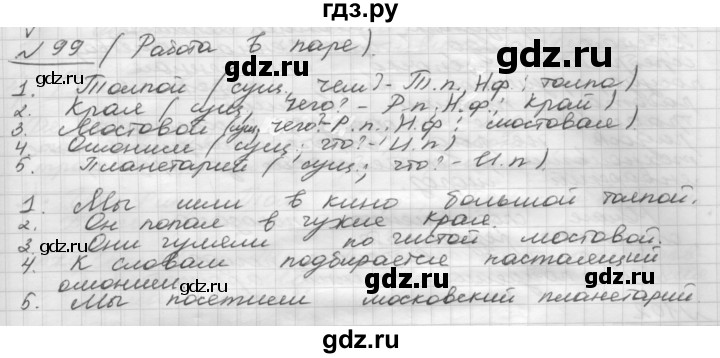 гдз.ру
№ 99 (Работа в паре).
1. Толпой (сущ. чем? - Т.п., Н.ф: толпа)
2. Края (сущ, чего? - Р.п, Н.ф; край)
3. Мостовой (сущ, чего? - Р.п., Н.ф; мостовая)
4. Омоним (сущ; что? - И.п)
5. Планетарий (сущ; что? - И.п).
1. Мы шли в кино большой толпой.
2. Он попал в чужие края.
3. Они гуляли по чистой мостовой.
4. К словам подбирается настоящий
омоним.
5. Мы посетили московский планетарий
gdz.ru gdz.ru gdz.ru
gdz.ru gdz.ru gdz.ru
gdz.ru gdz.ru gdz.ru
gdz.ru gdz.ru
gdz.ru